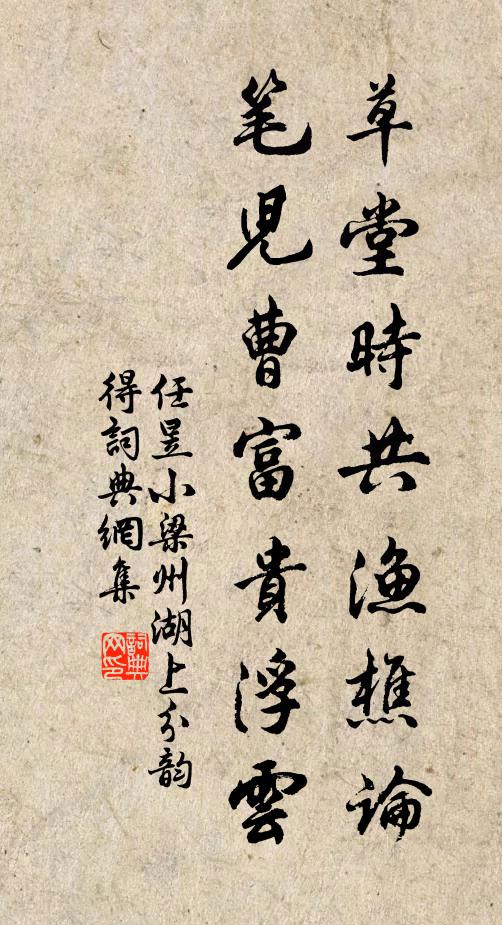 草堂時共漁樵論
笔兒曹富貴浮雲
任昱小梁州湖上分韵
得詞典網集
詞典网印